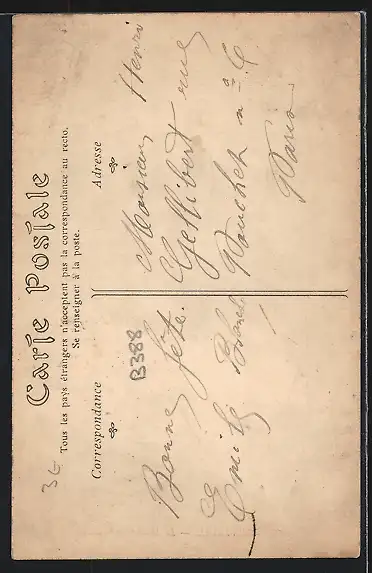 Carte Postale
Tous les pays étrangers n'acceptent pas la correspondance au recto.
Se renseigner à la poste.
Correspondance
Adresse
3€
B388
Bonne fête.
Emile
Monsieur Henri
Gellibert rue
n° 6
Paris